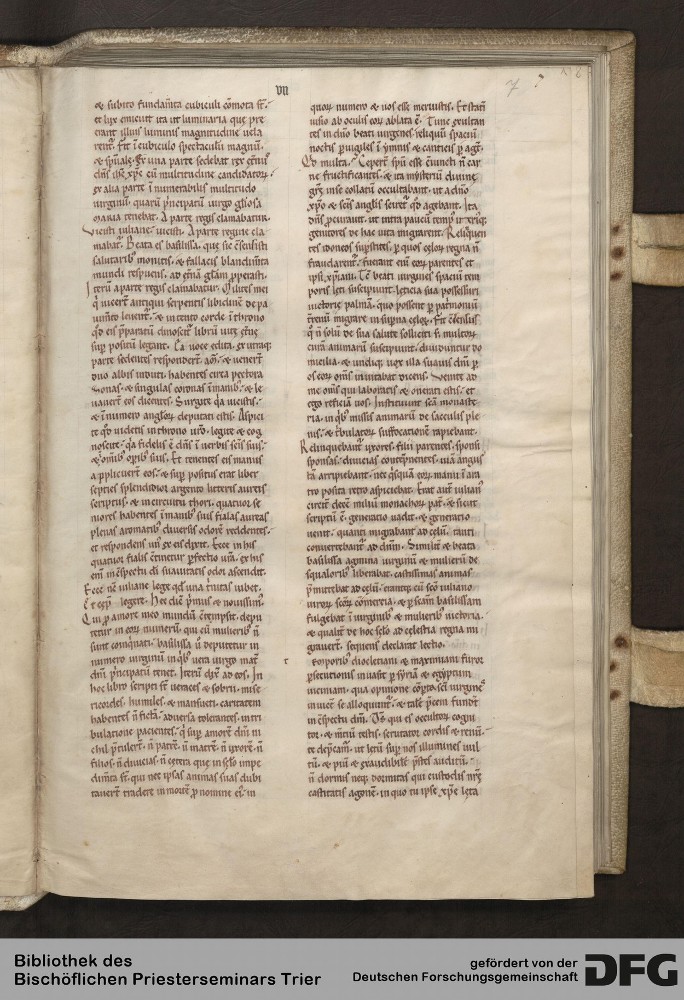 VII
7
& subito fundam̄ta cubiculi cōmota st̄.
et lux emicuit ita ut luminaria que pre
erant illius luminis magnitudine uela
rent̄. Fit ī cubiculo spectaculū magnū.
& spūale. Ex una parte sedebat rex et̄nus
dn̄s ih̄c xp̄c cū multitudine candidatoꝝ.
ex alia parte īnumerabilis multitudo
uirginū. quarū pͥncipatū uirgo gl̄osa
maria tenebat. A parte regis clamabatur.
Vicisti iuliane. uicisti. A parte regine cla
mabat᷑. Beata es basilissa. que sic c̄sensisti
salutaribꝰ monitis. & fallacis blandim̄ta
mundi respuens. ad et̄nā gl̄am ꝓperasti.
Iterū a parte regis clamabatur. Milites mei
qͥ uicer̄t antiqui serpentis libidinē de pa
uim̄to leuent᷑. & intento corde ī throno
parte sedentes responder̄t am̄. & uener̄t
duo albis induti. habentes circa pectora
zonas. & singulas coronas ī manibꝰ. & le
uauer̄t eos dicentes. Surgite qͣ uicistis.
& ī numero angl̄oꝝ deputati estis. Aspici
te qd̄ uidetis in throno uro̅. legite & cog
noscite. qͣ fidelis ē dn̄s ī uerbis suis.
& ī om̄ibꝰ operibꝰ suis. Et tenentes eis manus
applicuer̄t eos. & suꝑ positus erat liber
septies splendidior argento litteris aureis
scriptus. & in circuitu thori. quatuor se
niores habentes ī manibꝰ suis fialas aureas
plenas aromatibꝰ diuersis odorē reddentes.
et respondens unꝰ ex eis dixit. Ecce in his
quatuor fialis c̄tinetur ꝑfectio ur̄a. ex his
eni̅ in c̄spectu dī suauitatis odor ascendit.
Ecce nē iuliane lege qd̄ una tͥnitas iubet.
legere. Hec dic̄ pͥmus & nouissimꝰ.
Qui ꝓ amore meo mundū c̄tempsit. depu
tetur in eorū numerū. qui cū mulieribꝰ n̄
sunt coinqͥnati. basilissa ū deputetur in
numero uirginū in qͥbꝰ uera uirgo mat̄
dn̄i pͥncipatū tenet. Iterū dix̄ ad eos. In
hoc libro scripti st̄ ueraces & sobrii. mise
ricordes. humiles. & mansueti. caritatem
habentes n̄ fictā. aduersa tolerantes. in tri
bulatione pacientes. qͥ suꝑ amorē dn̄i ni
chil pͥtuler̄t. n̄ patrē. n̄ matrē. n̄ uxorē. n̄
filios. n̄ diuicias. n̄ cetera que in sc̄lo impe
dim̄ta st̄. qui nec ipsas animas suas dubi
tauer̄t tradere in mortē ꝓ nomine eiꝰ. in
quoꝝ numero & uos esse meruistis. Et statī
uisio ab oculis eoꝝ ablata ē. Tunc exultan
tes in dn̄o beati uirgines. reliquū spaciū
noctis ꝑuigiles ī ymnis & canticis ꝑ ag̅.
Qd̄ multa. Ceper̄t spū esse c̄iuncti n̄ car
ne fructificantes. & ita mysteriū diuine
gr̄e in se collatū occultabant. ut a dn̄o
xp̄o & sc̄is angl̄is sciret᷑ qd̄ agebant. Ita
dn̄s ꝓcurauit. ut intra paucū tempꝰ utͥqꝫ
genitores de hac uita migrarent. Relinquen
tes idoneos supstites. ꝑ quos celoꝝ regna n̄
fraudarent᷑. fuerant enī eoꝝ parentes et
ipsi xp̄iani. Tc̄ beati uirgines spaciū tem
poris leti suscipiunt. leticia sua possessuri
uictorie palmā. quo possent ꝑ patͥmoniū
tr̄enū migrare in suꝑna celoꝝ. Fit c̄sensus
qͥ n̄ solū de sua salute solliciti st̄ multoꝝ
curā animarū suscipiunt. diuiduntur do
micilia. & undiqꝫ uox illa suauis dn̄i ꝑ
os eoꝝ om̄s inuitabat dicens. Uenite ad
me om̄s qui laboratis & onerati estis. et
ego reficiā uos. Instituunt sc̄a monaste
ria. in qͥbꝰ missis animarū de sacculis ple
nis. & tͥbulatoꝝ suffocationē rapiebant.
Relinquebant᷑ uxores. filii parentes. sponsi
sponsas. diuicias contēpnentes. uiā angus
tā arripiebant. nec qͥsquā eoꝝ manū ī ara
tro posita retro aspiciebat. Erat aut̄ iulianꝰ
circit̄ decē miliū monachoꝝ pat̄. & sicut
scriptū ē. generatio uadit. & generatio
uenit. quanti migrabant ad celū. tanti
conuertebant᷑ ad dn̄m. Similit̄ & beata
basilissa agmina uirginū & mulierū de
squaloribꝰ liberabat. castissimas animas
pͥmittebat ad celū. erantqꝫ cū sc̄o iuliano
uiroꝝ sc̄oꝝ cōmercia. & ꝑ sc̄am basilissam
fulgebat ī uirginibꝰ & mulieribꝰ uictoria.
& qualit̄ de hoc sc̄lo ad celestia regna mi
grauer̄t. sequens declarat lectio.
temporibꝰ diocletiani & maximiani furor
ꝑsecutionis inuasit ꝑ syriā & egyptum
uicinam. qua opinione cōꝑta. sc̄i uirgines
inuicē se alloquunt᷑. & talē pͥcem fundūt
in c̄spectu dn̄i. Ds̄ qui es occultoꝝ cogni
tor. & mentiū testis. scrutator cordis & renū.
te dep̄cam᷑. ut letū suꝑ nos illumines uul
tū. & piū & exaudibilē pͥstes auditū.
n̄ dormis neqꝫ dormitas qui custodis nr̄e
castitatis agonē. in quo tu ipse xp̄e leta
Bibliothek des
Bischöflichen Priesterseminars Trier
gefördert von der
Deutschen Forschungsgemeinschaft
DFG